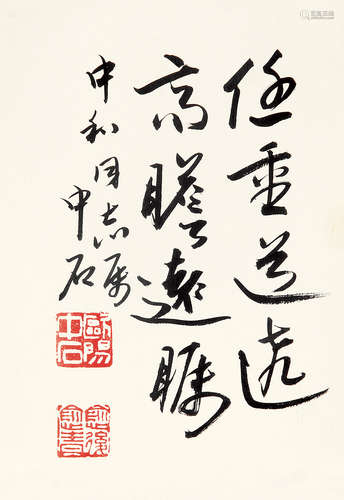 任重道远
高瞻远瞩
中和同志属
中石
欧阳中石